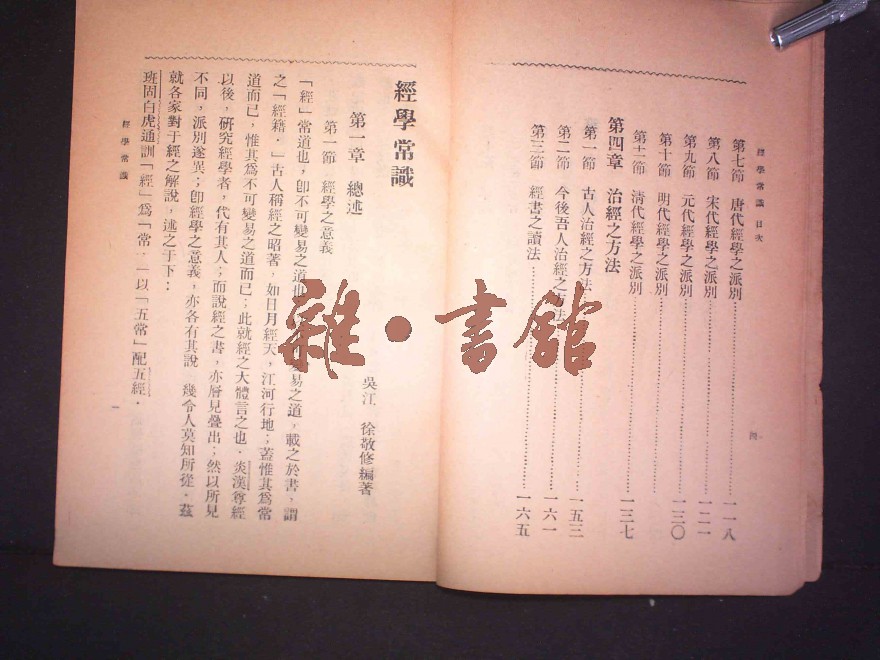 經學常識 目次
第七節 唐代經學之派別 一一八
第八節 宋代經學之派別 一二一
第九節 元代經學之派別
第十節 明代經學之派別 一三〇
第十一節 清代經學之派別 一三七
第四章 治經之方法
第一節 古人治經之方法 一五三
第二節 今後吾人治經之方法 一六一
第三節 經書之讀法 一六五
四
雜·書館
經學常識
吳江 徐敬修編著
第一章 總述
第一節 經學之意義
「經」常道也,卽不可變易之道也 變易之道,載之於書,謂
之「經籍.」古人稱經之昭著,如日月經天,江河行地;蓋惟其爲常
道而已,惟其爲不可變易之道而已;此就經之大體言之也.炎漢尊經
以後,硏究經學者,代有其人;而說經之書,亦層見疊出;然以所見
不同,派別遂異;卽經學之意義,亦各有其說 幾令人莫知所從.茲
就各家對于經之解說,述之于下:
班固白虎通訓「經」爲「常.」以「五常」配五經.
經學常識
一